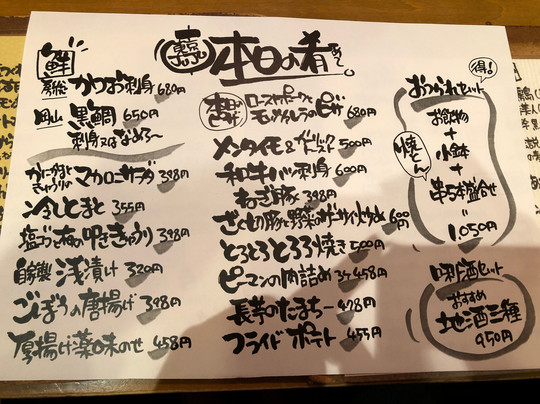 本日の肴
鮮
かつお刺身 680円
岡山 黒鯛 650円
刺身又はなめろー
かにかまときゅうりの マカロニサラダ 398円
冷しとまと 355円
塩ごんぶの叩ききゅうり 398円
自家製 浅漬け 320円
ごぼうの唐揚げ 398円
厚揚げ薬味のせ 458円
ローストポークとモッツァレラのピザ 680円
メンタイモ&ガーリックトースト 500円
和牛ハツ刺身 600円
ねぎ豚 398円
ざく切豚と野菜のザーサイ炒め 600円
とろとろとろろ焼き 500円
ピーマンの肉詰め 3ヶ 458円
長芋のたまちー 478円
フライドポテト 455円
得!
おつかれセット
お飲物
+
小鉢
+
焼とん
串5本盛合せ
〃
1,050円
唎酒セット
おすすめ
地酒三種
950円